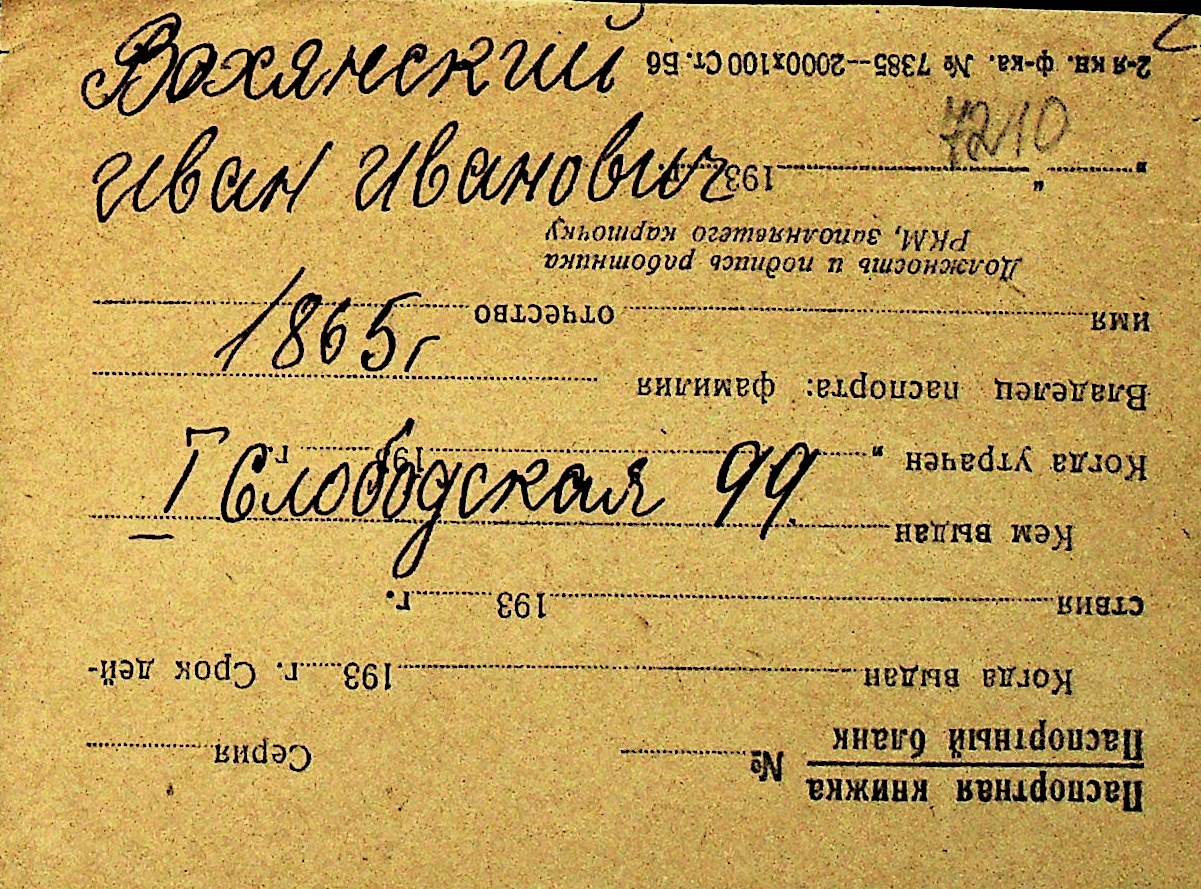 Вохянский
Иван Иванович
1865 г
I Слободская 99
7210
Паспортная книжка
Паспортный бланк
№
Серия
Когда выдан 193 г. Срок дей-
ствия 193 г.
Кем выдан
Когда утрачен „ 193 г.
Владелец паспорта: фамилия
имя отчество
Должность и подпись работника
РКМ, заполнявшего карточку
„ “ 193 г.
2-я кн. ф-ка. № 7385—2000х100 Ст. Б6